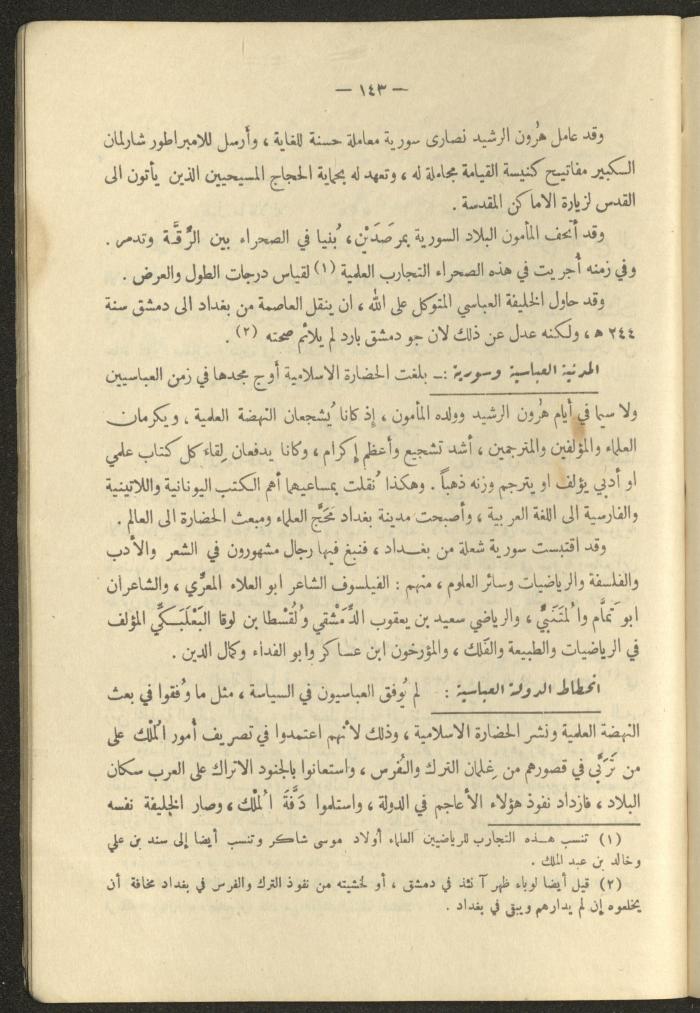 — ١٤٣ —
وقد عامل هٰرون الرشيد نصارى سورية معاملة حسنة للغاية ، وأرسل للامبراطور شارلمان
الكبير مفاتيح كنيسة القيامة مجاملة له ، وتعهد له بحماية الحجاج المسيحيين الذين يأتون الى
القدس لزيارة الاماكن المقدسة .
وقد أتحف المأمون البلاد السورية بمرصَدَيْن ، بُنيا في الصحراء بين الرَّقَّة وتدمر .
وفي زمنه أُجريت في هذه الصحراء التجارب العلمية (١) لقياس درجات الطول والعرض .
وقد حاول الخليفة العباسي المتوكل على الله ، ان ينقل العاصمة من بغداد الى دمشق سنة
٢٤٤ ه ، ولكنه عدل عن ذلك لان جو دمشق بارد لم يلائم صحته (٢) .
المدنية العباسية وسورية :ـ بلغت الحضارة الاسلامية أوج مجدها في زمن العباسيين
ولا سيما في أيام هٰرون الرشيد وولده المأمون ، إذ كانا يُشجعان النهضة العلمية ، ويكرمان
العلماء والمؤلفين والمترجمين ، أشد تشجيع وأعظم إكرام ، وكانا يدفعان لِقاءَ كل كتاب علمي
او أدبي يؤلف او يترجم وزنه ذهباً . وهكذا نُقلت بمساعيهما أهم الكتب اليونانية واللاتينية
والفارسية الى اللغة العربية ، وأصبحت مدينة بغداد مَحَجَّ العلماء ومبعث الحضارة الى العالم .
وقد اقتبست سورية شعلة من بغداد ، فنبغ فيها رجال مشهورون في الشعر والأدب
والفلسفة والرياضيات وسائر العلوم ، منهم : الفيلسوف الشاعر ابو العلاء المعرِّي ، والشاعران
ابو تَمَّام والمُتَنَبِّي ، والرياضي سعيد بن يعقوب الدِّمَشْقي وقُسْطا بن لوقا البَعْلَبَكِّي المؤلف
في الرياضيات والطبيعة والفَلك ، والمؤرخون ابن عساكر وابو الفداء وكمال الدين .
انحطاط الدولة العباسية : لم يُوفق العباسيون في السياسة ، مثل ما وُفقوا في بعث
النهضة العلمية ونشر الحضارة الاسلامية ، وذلك لأنهم اعتمدوا في تصريف أمور المُلْك على
من تَرَبَّى في قصورهم من غِلمان الترك والفُرس ، واستعانوا بالجنود الاتراك على العرب سكان
البلاد ، فازداد نفوذ هؤلاء الأعاجم في الدولة ، واستلموا دَفَّةَ المُلْك ، وصار الخليفة نفسه
(١) تنسب هذه التجارب للرياضيين العلماء أولاد موسى شاكر وتنسب أيضا إلى سند بن علي
وخالد بن عبد الملك .
(٢) قيل أيضا لوباء ظهر آنئذ في دمشق ، أو لخشيته من نفوذ الترك والفرس في بغداد مخافة أن
يخلعوه إن لم يدارهم ويبق في بغداد .